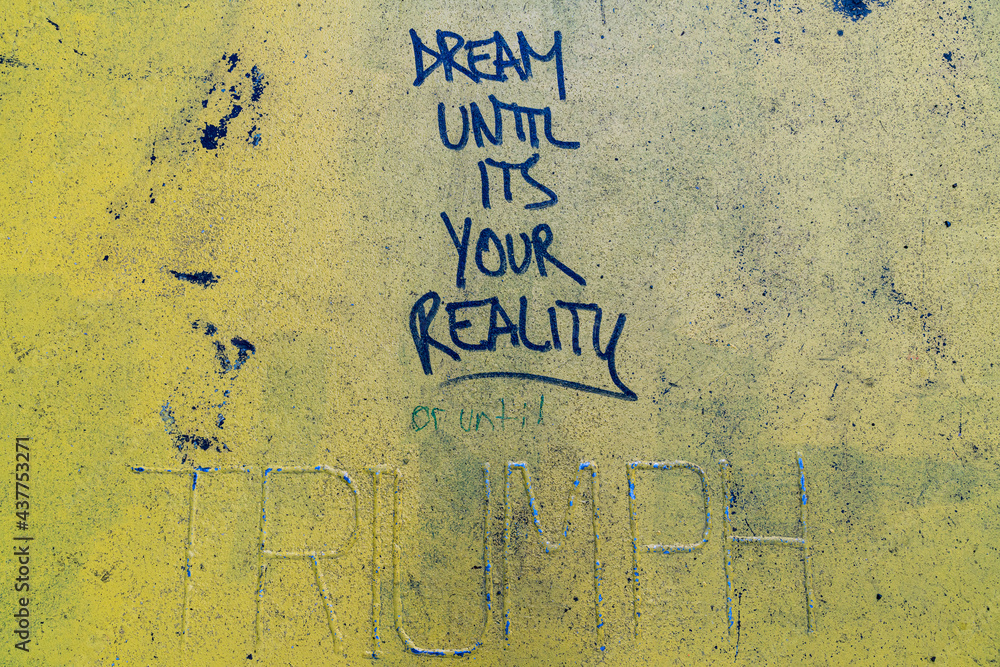 DREAM
UNTIL
ITS
YOUR
REALITY
or until
TRIUMPH
Adobe Stock | #437753271